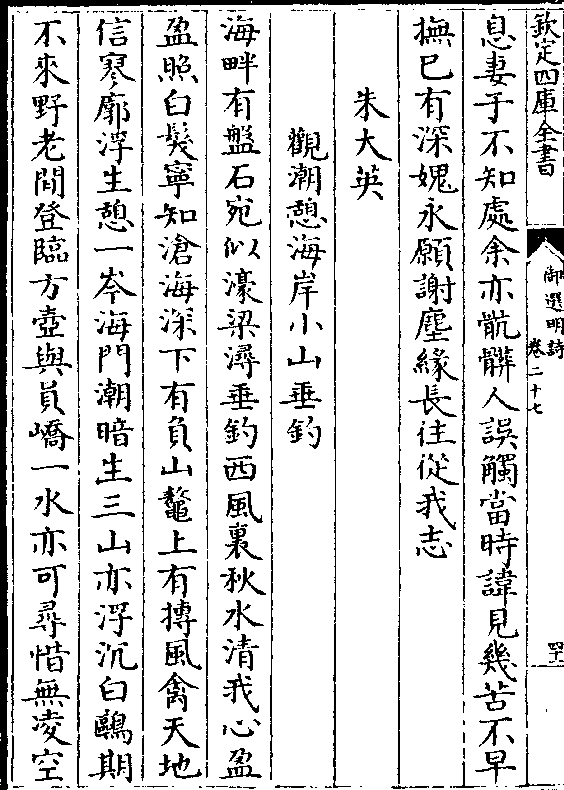 欽定四庫全書
御選明詩
卷二十七
四十一
息妻子不知處余亦骯髒人誤觸當時諱見幾苦不早
撫已有深媿永願謝塵緣長往從我志
朱大英
觀潮憩海岸小山垂釣
海畔有盤石宛似濠梁潯垂釣西風裏秋水清我心盈
盈照白髮寧知滄海深下有負山鼇上有摶風禽天地
信寥廓浮生憩一岑海門潮暗生三山亦浮沉白鷗期
不來野老閒登臨方壺與員嶠一水亦可尋惜無凌空